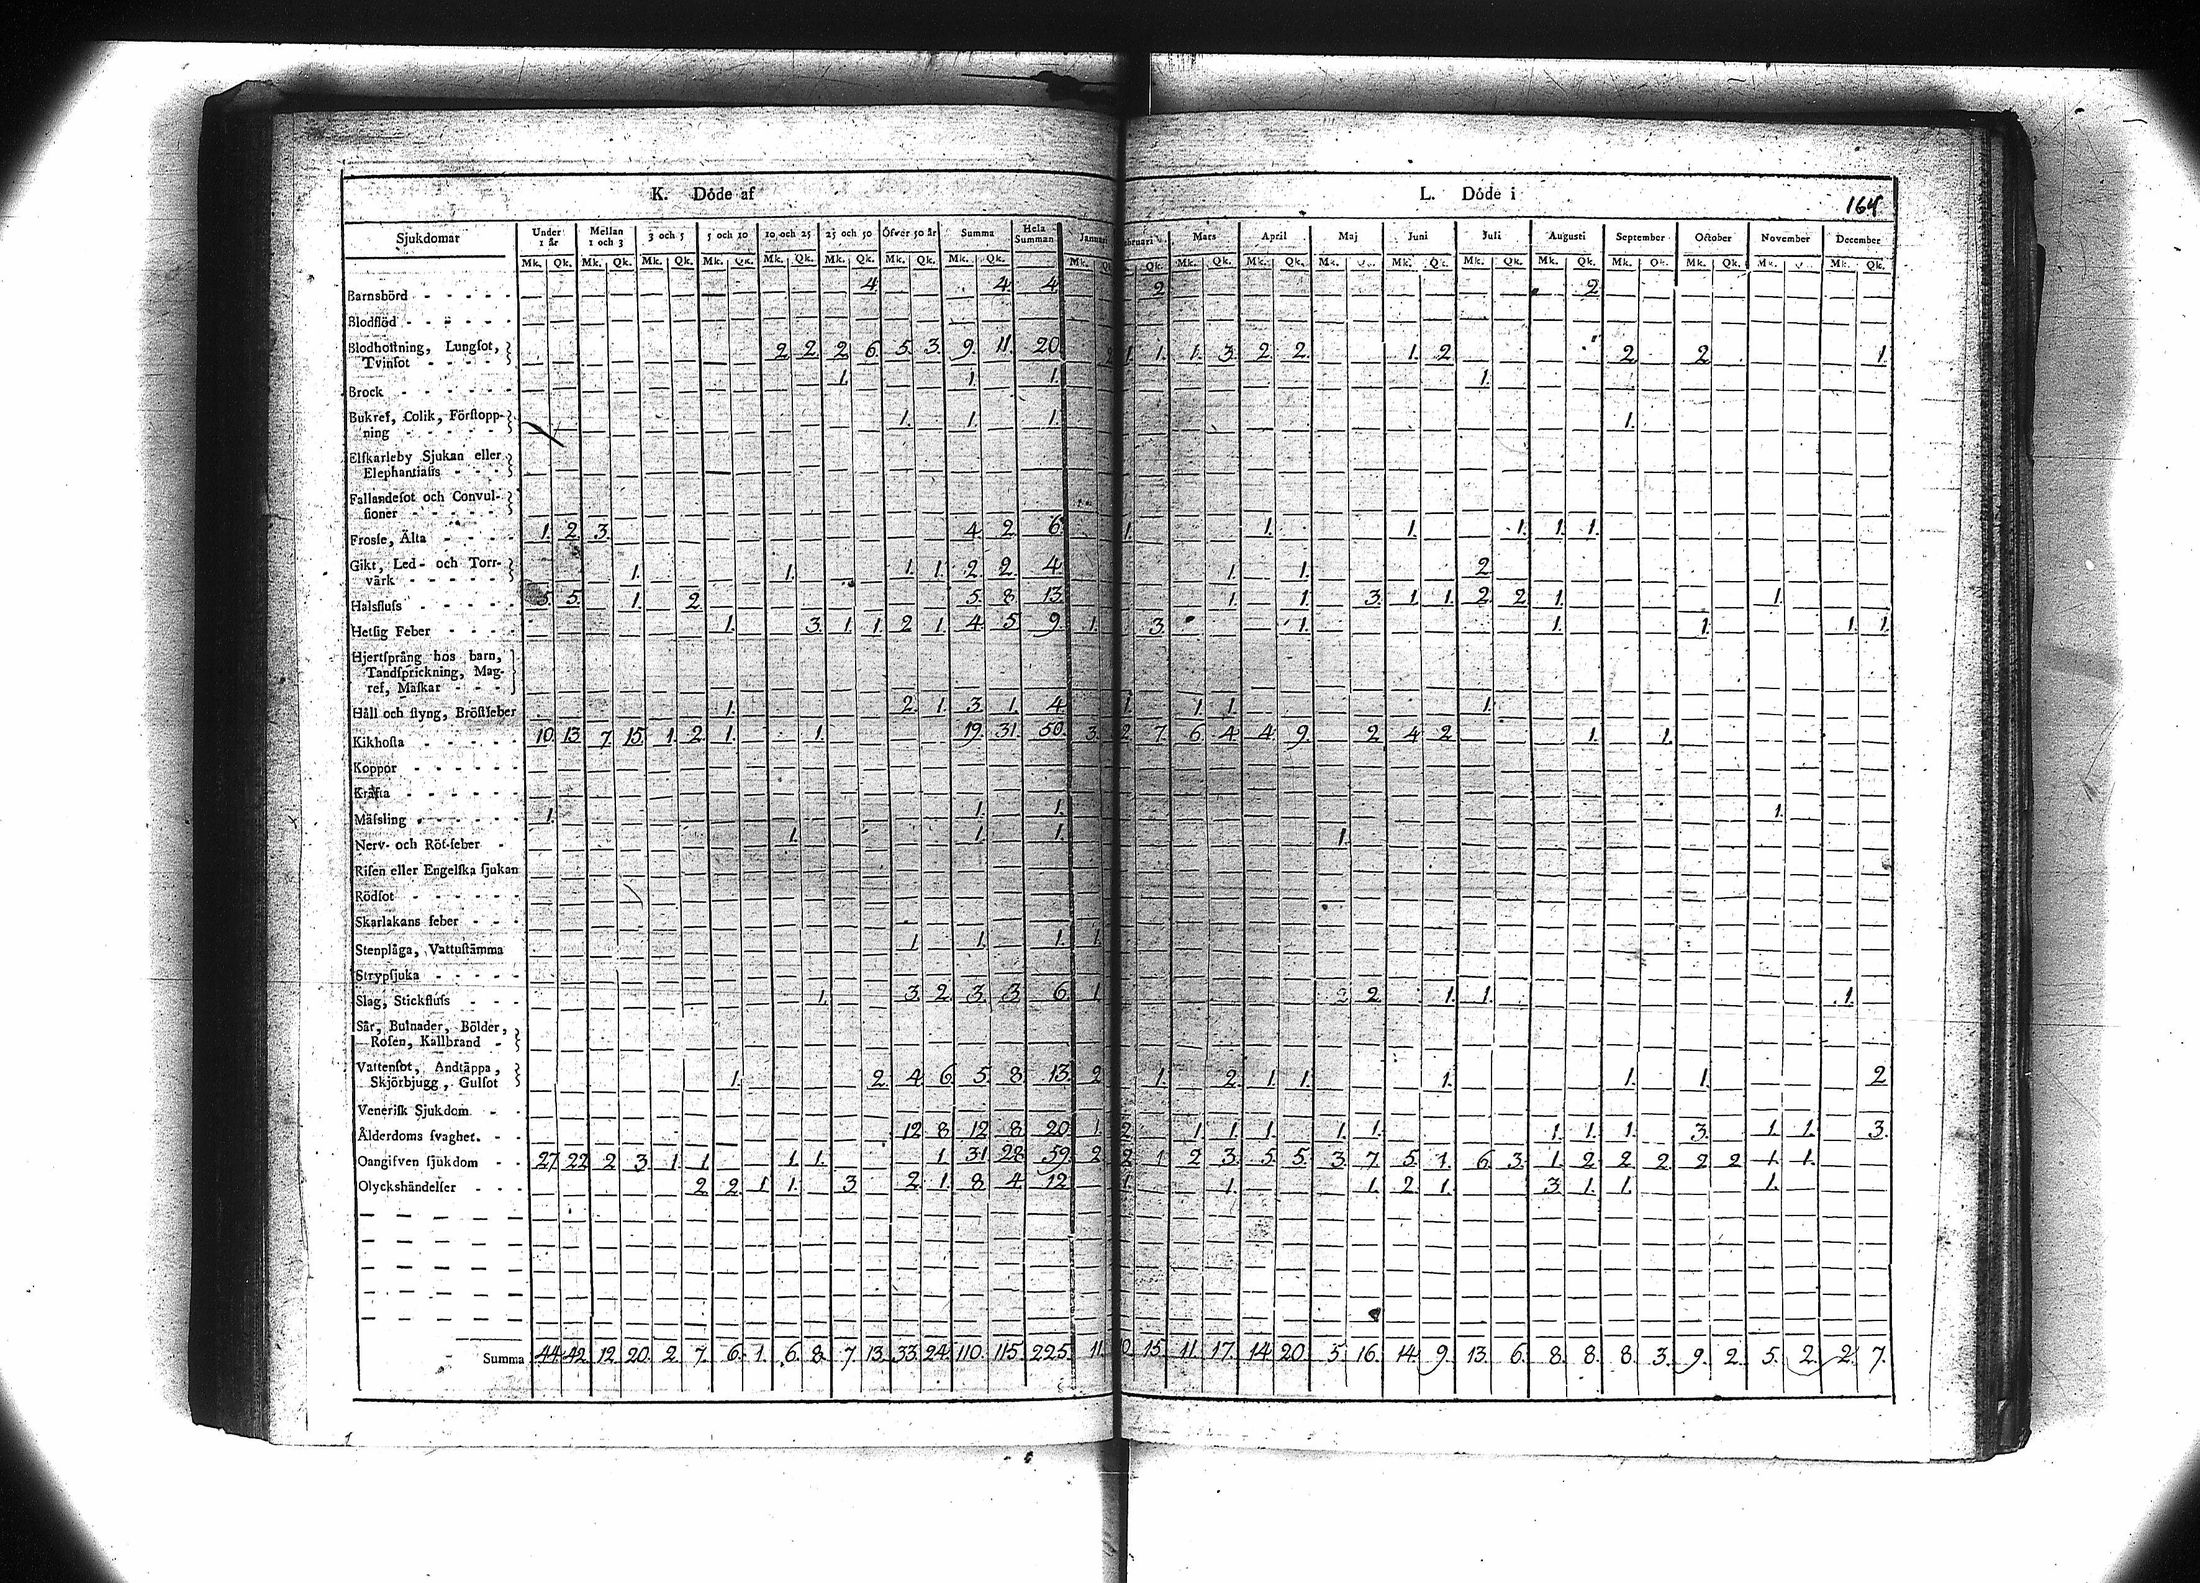 K. Döde af
L. Döde i
164
Sjukdomar Under 1 år Mellan 1 och 3 3 och 5 5 och 10 10 och 25 25 och 50 Öfver 50 år Summa Hela Summan Januari Mars April Maj Juni Juli Augusti September October November December
Mk. Qk. Mk. Qk. Mk. Qk. Mk. Qk. Mk. Qk. Mk. Qk. Mk. Qk. Mk. Qk. Mk. Qk. Mk. Qk. Mk. Qk. Mk. Mk. Qk. Mk. Mk. Qk. Mk. Qk. Mk. Qk. Mk. Mk. Qk.
Barnsbörd - - - - - 4 4 4 2 2
Blodflöd - - - - - -
Blodhostning, Lungſot,
Tvinſot - - - - 2 2 2 6 5. 3. 9. 11. 20. 2 1. 1. 1. 3. 2 2 1. 2 2 2 1.
Brock - - - - - - 1. 1. 1. 1.
Bukref, Colik, Förſtopp-
ning - - - - - 1. 1. 1. 1.
Elfkarleby Sjukan eller
Elephantiaſis - - -
Fallandeſot och Convul-
ſioner - - - - -
Frosſe, Älta - - - - 1. 2 3. 4 2 6 1. 1. 1. 1. 1. 1.
Gikt, Led- och Torr-
värk - - - - - 1. 1. 1. 1. 2 2 4 1. 1. 2
Halsfluſs - - - - - 5. 5. 1. 2 5. 8 13. 1. 1. 3. 1. 1. 2 2 1. 1.
Hetſig Feber - - - - 1. 3. 1. 1. 2 1. 4 5 9. 1. 3. 1. 1. 1. 1. 1.
Hjertſprång hos barn,
Tandſprickning, Mag-
ref, Maſkar - - -
Håll och ſtyng, Bröſtfeber 1. 2 1. 3. 1. 4 1. 1. 1. 1.
Kikhoſta - - - - - 10. 13. 7. 15. 1. 2 1. 1. 19. 31. 50. 3. 2 7. 6 4 4 9. 2 4 2 1. 1.
Koppor - - - - - -
Kräfta - - - - - -
Mäſsling - - - - - 1. 1. 1. 1.
Nerv- och Röt-feber - 1. 1. 1. 1.
Riſen eller Engelſka ſjukan
Rödſot - - - - - -
Skarlakans feber - - -
Stenplåga, Vattuſtämma 1. 1. 1. 1.
Strypſjuka - - - - -
Slag, Stickfluſs - - - 1. 3. 2 3. 3. 6 1. 2 2 1. 1. 1.
Sår, Bulnader, Bölder,
Roſen, Kallbrand -
Vattenſot, Andtäppa,
Skjörbjugg, Gulſot 1. 2 4 6 5. 8 13. 2 1. 2 1. 1. 1. 1. 1. 2
Veneriſk Sjukdom - -
Ålderdoms ſvaghet. - - 12 8 12 8 20 1. 2 1. 1. 1. 1. 1. 1. 1. 1. 3. 1. 1. 3.
Oangifven ſjukdom - - 27. 22 2 3. 1. 1. 1. 1. 1. 31 28 59. 2 2 1 2 3. 5 5. 3. 7. 5. 1. 6 3. 1. 2 2 2 2 2 1. 1.
Olyckshändelſer - - - 2 2 1. 1. 3. 2 1. 8. 4 12 1. 1. 1. 2 1. 3. 1. 1. 1.
Summa 44. 42. 12. 20. 2. 7. 6. 1. 6. 8. 7. 13. 33. 24. 110. 115. 225. 11. 15. 11. 17. 14. 20. 5. 16. 14. 9. 13. 6. 8. 8. 8. 3. 9. 2. 5. 2. 2. 7.